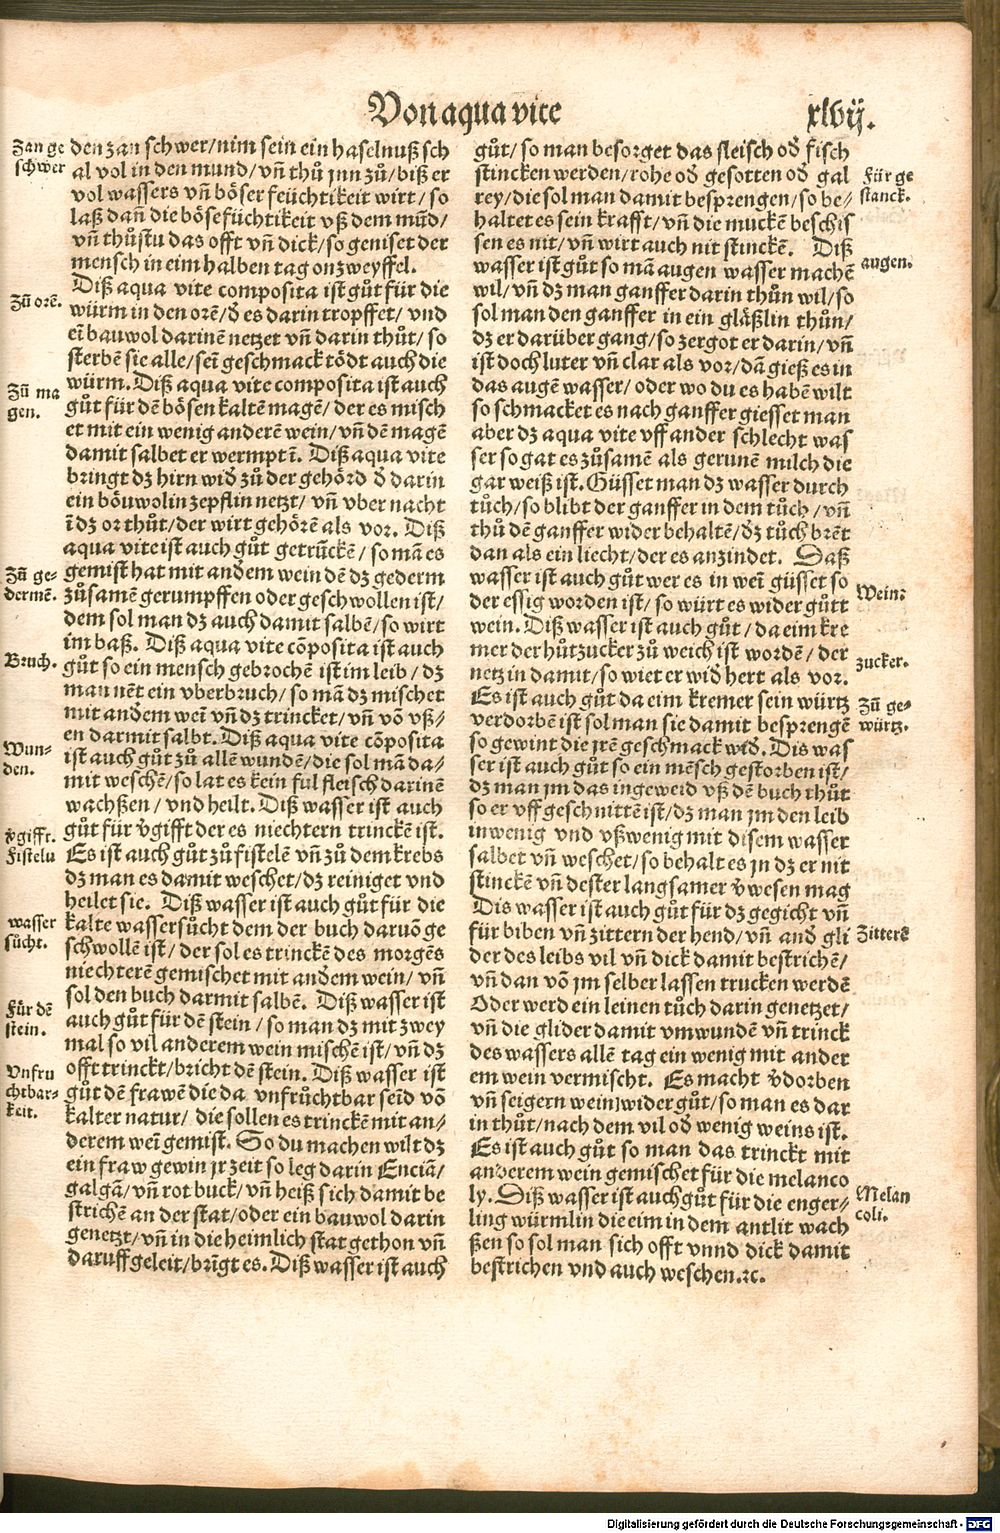 Von aqua vite
xlvij.
Zan ge
schwer
den zan schwer/nim sein ein haselnuß sch
al vol in den mund/vñ thů jnn zů/biß er
vol wassers vñ böser feüchtikeit wirt/so
laß dañ die böse füchtikeit vß dem mũd/
vñ thůstu das offt vñ dick/so geniset der
mensch in eim halben tag on zweyffel.
Diß aqua vite composita ist gůt für die
Zů orẽ.
würm in den orẽ/d̾ es darin tropffet/vnd
ei bauwol darinẽ netzet vñ darin thůt/so
sterbẽ sie alle/sei geschmack tödt auch die
würm. Diß aqua vite composita ist auch
Zů ma
gen.
gůt für dẽ bösen kaltẽ magẽ/der es misch
et mit ein wenig anderẽ wein/vñ dẽ magẽ
damit salbet er wermpt ĩ. Diß aqua vite
bringt dz hirn wid̾ zů der gehörd d̾ darin
ein böuwolin zepflin netzt/vñ vber nacht
ĩ dz or thůt/der wirt gehörẽ als vor. Diß
aqua vite ist auch gůt getrũckẽ/so mã es
Zů ge-
dermẽ.
gemist hat mit and̾em wein dẽ dz gederm
zůsamẽ gerumpffen oder geschwollen ist/
dem sol man dz auch damit salbẽ/so wirt
im baß. Diß aqua vite cõposita ist auch
Bruch.
gůt so ein mensch gebrochẽ ist im leib/dz
man nẽt ein vberbruch/so mã dz mischet
mit and̾em wei vñ dz trincket/vñ võ vß-
en darmit salbt. Diß aqua vite cõposita
Wun-
den.
ist auch gůt zů allẽ wundẽ/die sol mã da-
mit weschẽ/so lat es kein ful fleisch darinẽ
wachßen/vnd heilt. Diß wasser ist auch
v̾gifft.
gůt für v̾gifft der es niechtern trinckẽ ist.
Fistelu
Es ist auch gůt zů fistelẽ vñ zů dem krebs
dz man es damit weschet/dz reiniget vnd
heilet sie. Diß wasser ist auch gůt für die
wasser
sücht.
kalte wassersůcht dem der buch daruõ ge
schwollẽ ist/der sol es trinckẽ des morgẽs
niechterẽ gemischet mit and̾em wein/vñ
sol den buch darmit salbẽ. Diß wasser ist
Für dẽ
stein.
auch gůt für dẽ stein/so man dz mit zwey
mal so vil anderem wein mischẽ ist/vñ dz
offt trinckt/bricht dẽ stein. Diß wasser ist
Vnfru
chtbar-
keit.
gůt den frawẽ die da vnfrůchtbar seĩd võ
kalter natur/die sollen es trinckẽ mit an-
derem wei gemist. So du machen wilt dz
ein fraw gewin jr zeit so leg darin Enciã/
galgã/vñ rot buck/vñ heiß sich damit be
strichẽ an der stat/oder ein bauwol darin
genetzt/vñ in die heimlich stat gethon vñ
daruff geleit/brĩgt es. Diß wasser ist auch
gůt/so man besorget das fleisch od̾ fisch
Für ge
stanck.
stincken werden/rohe od̾ gesotten od̾ gal
rey/die sol man damit besprengen/so be-
haltet es sein krafft/vñ die muckẽ beschis
sen es nit/vñ wirt auch nit stinckẽ. Diß
augen.
wasser ist gůt so mã augen wasser machẽ
wil/vñ dz man ganffer darin thůn wil/so
sol man den ganffer in ein gläßlin thůn/
dz er darüber gang/so zergot er darin/vñ
ist doch luter vñ clar als vor/dã gieß es in
das augẽ wasser/oder wo du es habẽ wilt
so schmacket es nach ganffer giesset man
aber dz aqua vite vff ander schlecht was
ser so gat es zůsamẽ als gerunẽ milch die
gar weiß ist. Güsset man dz wasser durch
tůch/so blibt der ganffer in dem tůch/vñ
thů dẽ ganffer wider behaltẽ/dz tůch brẽt
dan als ein liecht/der es anzindet. Daß
Wein.
wasser ist auch gůt wer es in wei güsset so
der essig worden ist/so würt es wider gůtt
wein. Diß wasser ist auch gůt/da eim kre
zucker.
mer der hůtzucker zů weich ist wordẽ/der
netz in damit/so wiet er wid̾ hert als vor.
Zů ge-
würtz.
Es ist auch gůt da eim kremer sein würtz
verdorbẽ ist sol man sie damit besprengẽ
so gewint die jrẽ geschmack wid̾. Dis was
ser ist auch gůt so ein mẽsch gestorben ist/
dz man jm das ingeweid vß dẽ buch thůt
so er vff geschnittẽ ist/dz man jm den leib
inwenig vnd vßwenig mit disem wasser
salbet vñ weschet/so behalt es jn dz er nit
stinckẽ vñ dester langsamer v̾wesen mag
Dis wasser ist auch gůt für dz gegicht vñ
Zitterẽ
für biben vñ zittern der hend/vñ and̾ gli
der des leibs vil vñ dick damit bestrichẽ/
vñ dan võ jm selber lassen trucken werdẽ
Oder werd ein leinen tůch darin genetzet/
vñ die glider damit vmwunden vñ trinck
des wassers allẽ tag ein wenig mit ander
em wein vermischt. Es macht v̾dorben
vñ seigern wein wider gůt/so man es dar
in thůt/nach dem vil od̾ wenig weins ist.
Es ist auch gůt so man das trinckt mit
anderem wein gemischet für die melanco
Melan
coli.
ly. Diß wasser ist auch gůt für die enger-
ling würmlin die eim in dem antlit wach
ßen so sol man sich offt vnnd dick damit
bestrichen vnd auch weschen.ꝛc.
Digitalisierung gefördert durch die Deutsche Forschungsgemeinschaft - DFG